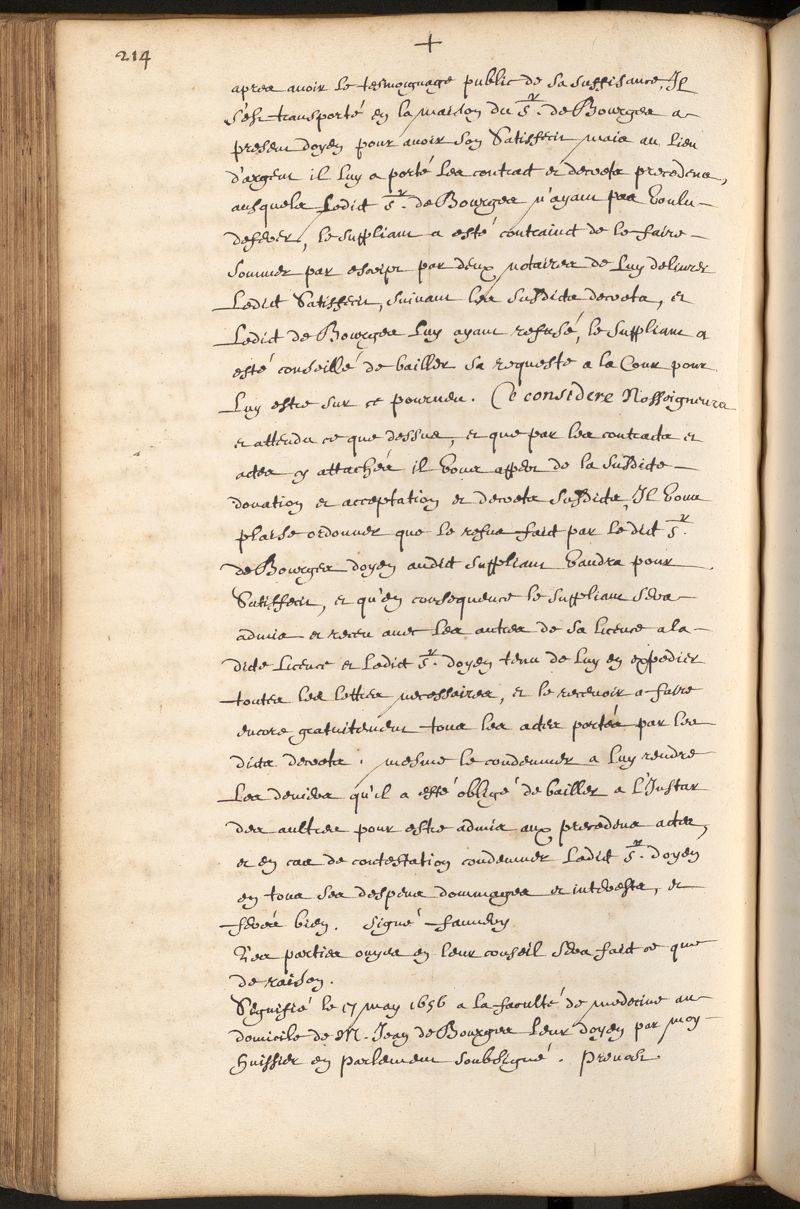 214
+
apres avoir le tesmoignage public de sa suffisance, Il
s'est transporté en la maison du Sr. de Bourges a
present doyen pour avoir son Satisfecit mais au lieu
d'argent il luy a porté les contract et decrets precedens,
ausquels Ledict Sr. de Bourges n'ayant pas voulu
deferer, le suppliant a esté contrainct de le faire
sommer par escript par deux notaires de luy delivrer
Ledict Satisfecit, suivant les susdicts decrets, et
Ledict de Bourges luy ayant refusé, le suppliant a
esté conseillé de bailler sa requeste a la Cour pour
luy estre sur ce pourveu. Ce consideré Nosseigneurs
et attendu ce que dessus, et que par les contracts et
actes cy attachés il vous appert de la susdicte
donation et acceptation et decrets susdicts, Il vous
plaise ordonner que le refus faict par ledict Sr.
de Bourges doyen audict suppliant vaudra pour
Satisfecit, et qu'en consequence le suppliant sera
admis et receu avec les autres de sa licence a la
dicte Licence et Ledict Sr. doyen tenu de luy en expedier
toutes les lettres necessaires, et le recevoir a faire
encore gratuitement tous les actes portés par les
dicts decrets. mesme le condemner a luy rendre
Les deniers qu'il a esté obligé de bailler a L'Instar
des aultres pour estre admis aux precedens actes,
et en cas de contestation condemner Ledict Sr. doyen
en tous ses despens dommages et interests, et
ferés bien. Signé
Les parties ouyes en leur conseil sera faict ce que
de raison.
Signifié le 17 may 1656 a la faculté de medecine au
domicile de M. Jean de Bourges leur doyen par moy
huissier en parlement soubsigné. Prevost